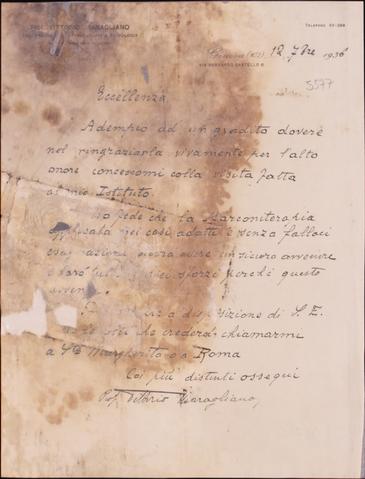 PROF. VITTORIO MARAGLIANO
TELEFONO 53-288
Genova (102) 12 7bre 1936
VIA BERNARDO CASTELLO 8
5577
Eccellenza
Adempio ad un gradito dovere
nel ringraziarla vivamente per l'alto
onore concessomi colla visita fatta
al mio Istituto.
Ho fede che la Marconiterapia
applicata nei casi adatti e senza fallaci
esagerazioni avere un sicuro avvenire
e farò miei sforzi perchè questo
avvenga.
a disposizione di S. E.
che crederà chiamarmi
a Sta Margherita o a Roma
Coi più distinti ossequi
Prof. Vittorio Maragliano